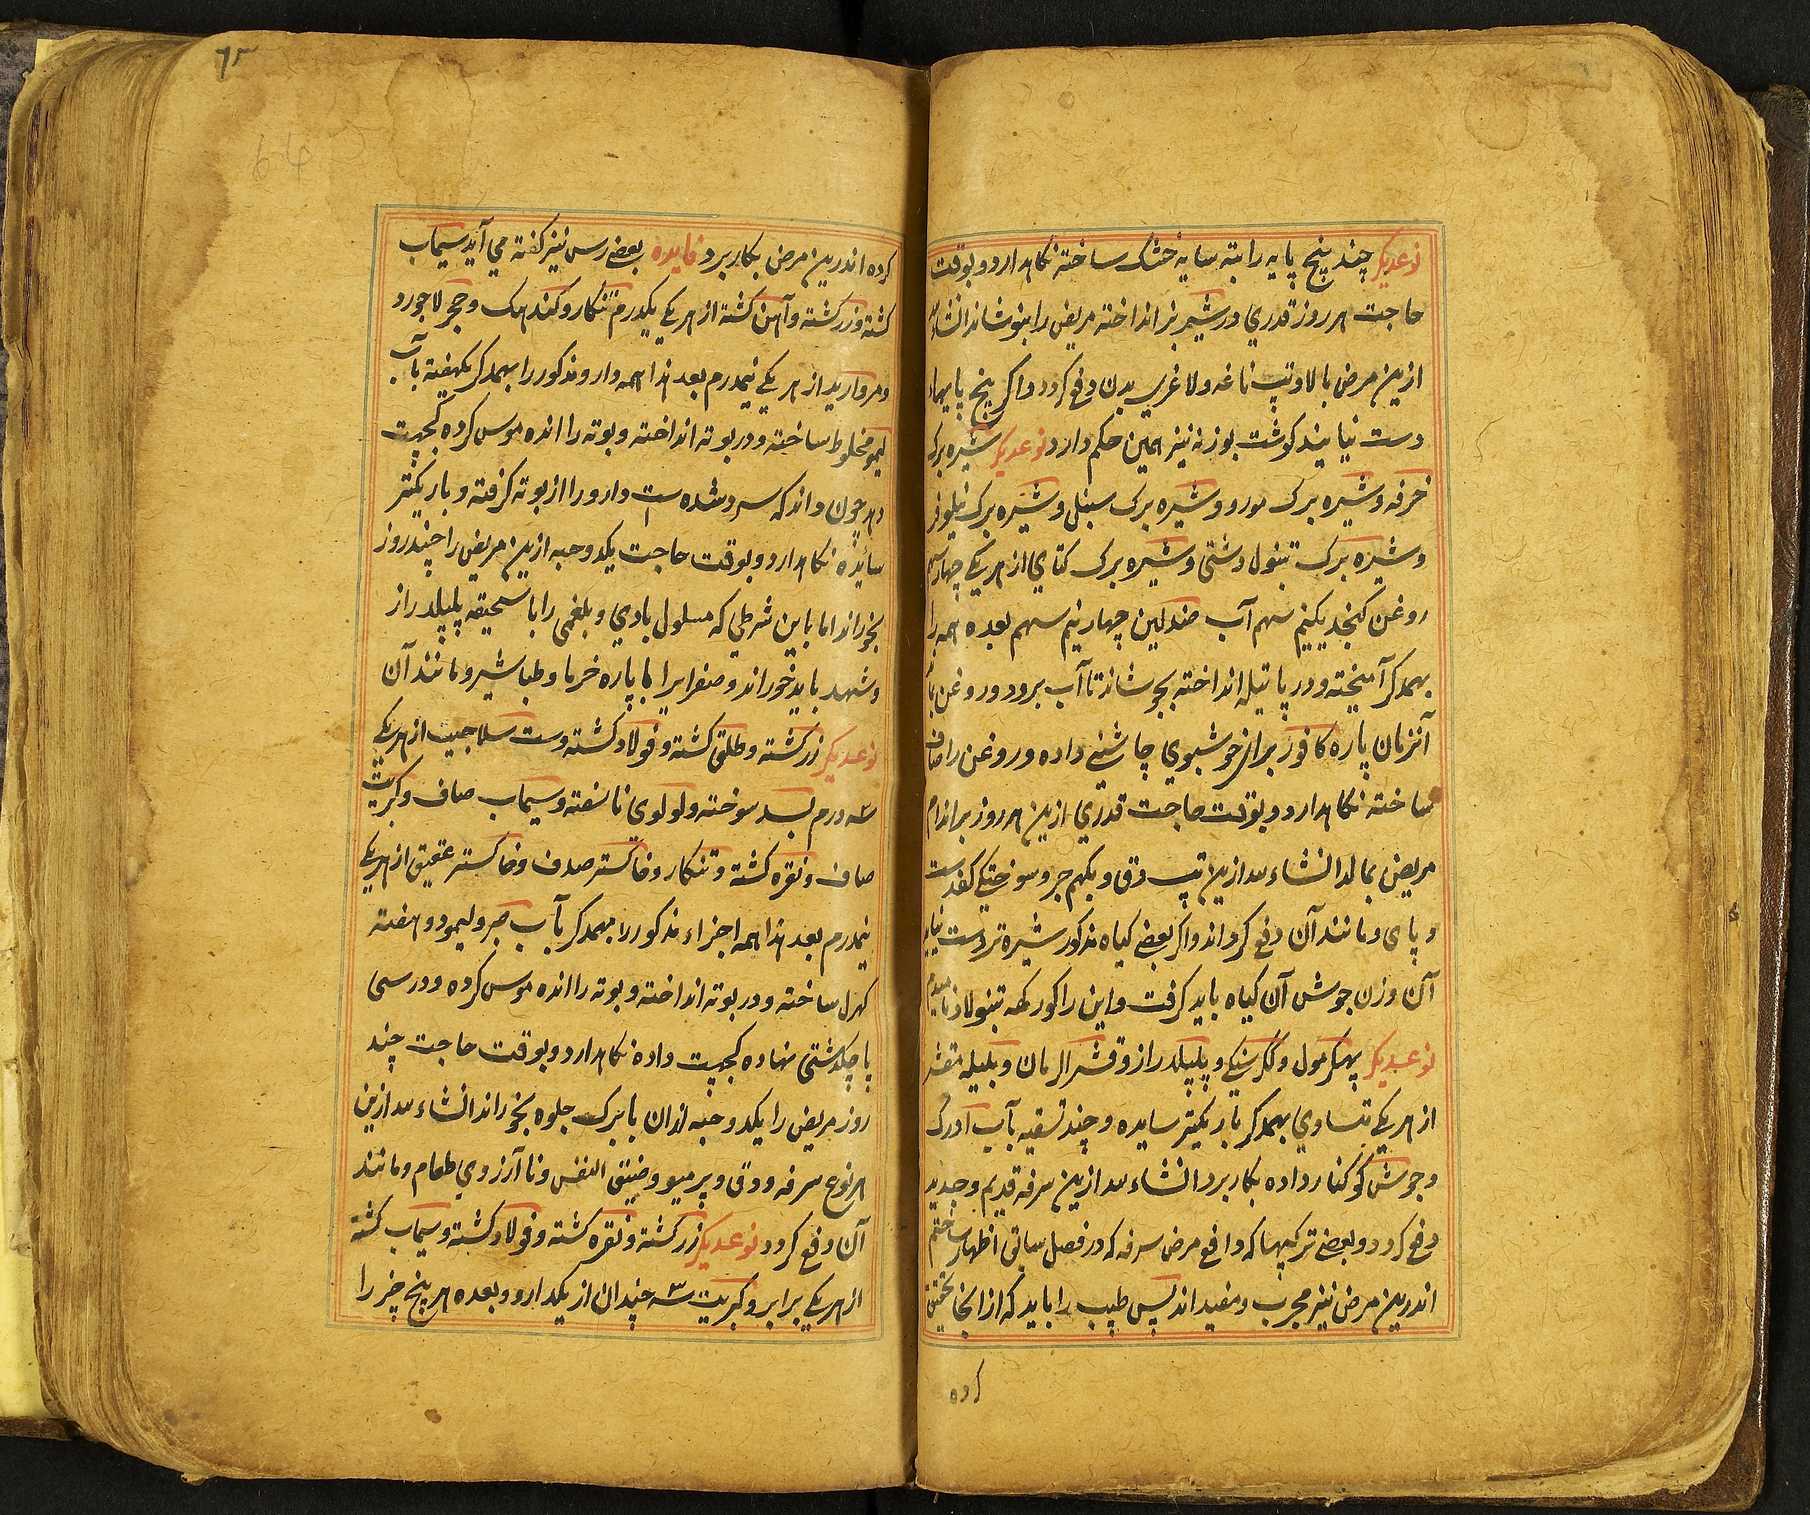 نوعدیکر چند پنج پایه را بته سایه خشک ساخته نکاهدارد و بوقت
حاجت هر روز قدری در شیر بز انداخته مریض را بنوشاند انشاء
ازین مرض بالا و تپ ناغه و لاغری بدن دفع کردد و اکر پنج پایها
دست نیایند کوشت بوزنه نیز همین حکم دارد نوعدیکر شیره برک
خرفه و شیره برک مورو و شیره برک سنبل و شیره برک نیلوفر
و شیره برک تنبول دشتی و شیره برک کتای از هر یکی چهار سهم
روغن کنجد یکنیم سهم آب صندلین چهار نیم سهم بعده همه را
بهمدکر آمیخته و در پاتیله انداخته بجوشاند تا آب برود و روغن بماند
آنزمان پاره کافور برای خوشبوی چاشنی داده و روغن را صاف
ساخته نکاهدارد و بوقت حاجت قدری ازین هر روز بر اندام
مریض بمالد انشاءالله ازین تپ دق و بکهم جر و سوختکی کفدست
و پای و مانند آن دفع کرداند و اکر بعضی کیاه مذکور شیره تر دست نیاید
آن وزن جوش آن کیاه باید کرفت و این را کورکهه تنبولاد نامیدم
نوعدیکر پهکرمول و ککرسنکی و پلپلدراز و قشر الرمان و بلیله مقشر
از هر یکی تساوی بهمدکر باریکتر سایده و چند تسقیه بآب ادرک
و جوش کوکنار داده بکار برد انشاءالله ازین سرفه قدیم و جدید
دفع کردد و بعضی ترکیبها که دافع مرض سرفه که در فصل سابق اظهار ساختم
اندرین مرض نیز مجرب و مفید اند پس طبیب را باید که از انجا تحقیق
کرده
۶۵
64
کرده اندرین مرض بکار برد فایده بعضی رس نیز کفته می آید سیماب
کشته و زر کشته و آهن کشته از هر یکی یکدرم تنکار و کندهک و حجر لاجورد
و مروارید از هر یکی نیمدرم بعد هذا همه دارو مذکور را بهمدکر یکهفته بآب
لیمو مخلوط ساخته و در بوته انداخته و بوته را انده موس کرده کجپت
دهد چون داند که سرد شده است دارو را از بوته کرفته و باریکتر
سائیده نکاهدارد و بوقت حاجت یکدو حبه ازین مریض را چند روز
بخوراند اما باین شرطی که مسلول بادی و بلغمی را با سحیقه پلپلدراز
و شهد باید خوراند و صفرا یرا با پاره خرما و طباشیر و مانند آن
نوعدیکر زر کشته و طلق کشته و فولاد کشته و ست سلاجیت از هر یکی
سه درم بسد سوخته و لولوی ناسفته و سیماب صاف و کبریت
صاف و نقره کشته و تنکار و خاکستر صدف و خاکستر عقیق از هر یکی
نیمدرم بعد هذا همه اجزاء مذکور را بهمدکر بآب صبر و لیمو دو هفته
کهرل ساخته و در بوته انداخته و بوته را انده موس کرده و در سی
پاچکدشتی نهاده کجپت داده نکاهدارد و بوقت حاجت چند
روز مریض را یکدو حبه ازان با برک جلوه بخوراند انشاءالله ازین
هر نوع سرفه و دق و پرمیو و ضیق النفس و نا آرزوی طعام و مانند
آن دفع کردد نوعدیکر زر کشته و نقره کشته و فولاد کشته و سیماب کشته
از هر یکی برابر و کبریت سه چندان از یکدارو و بعده هر پنج چیز را